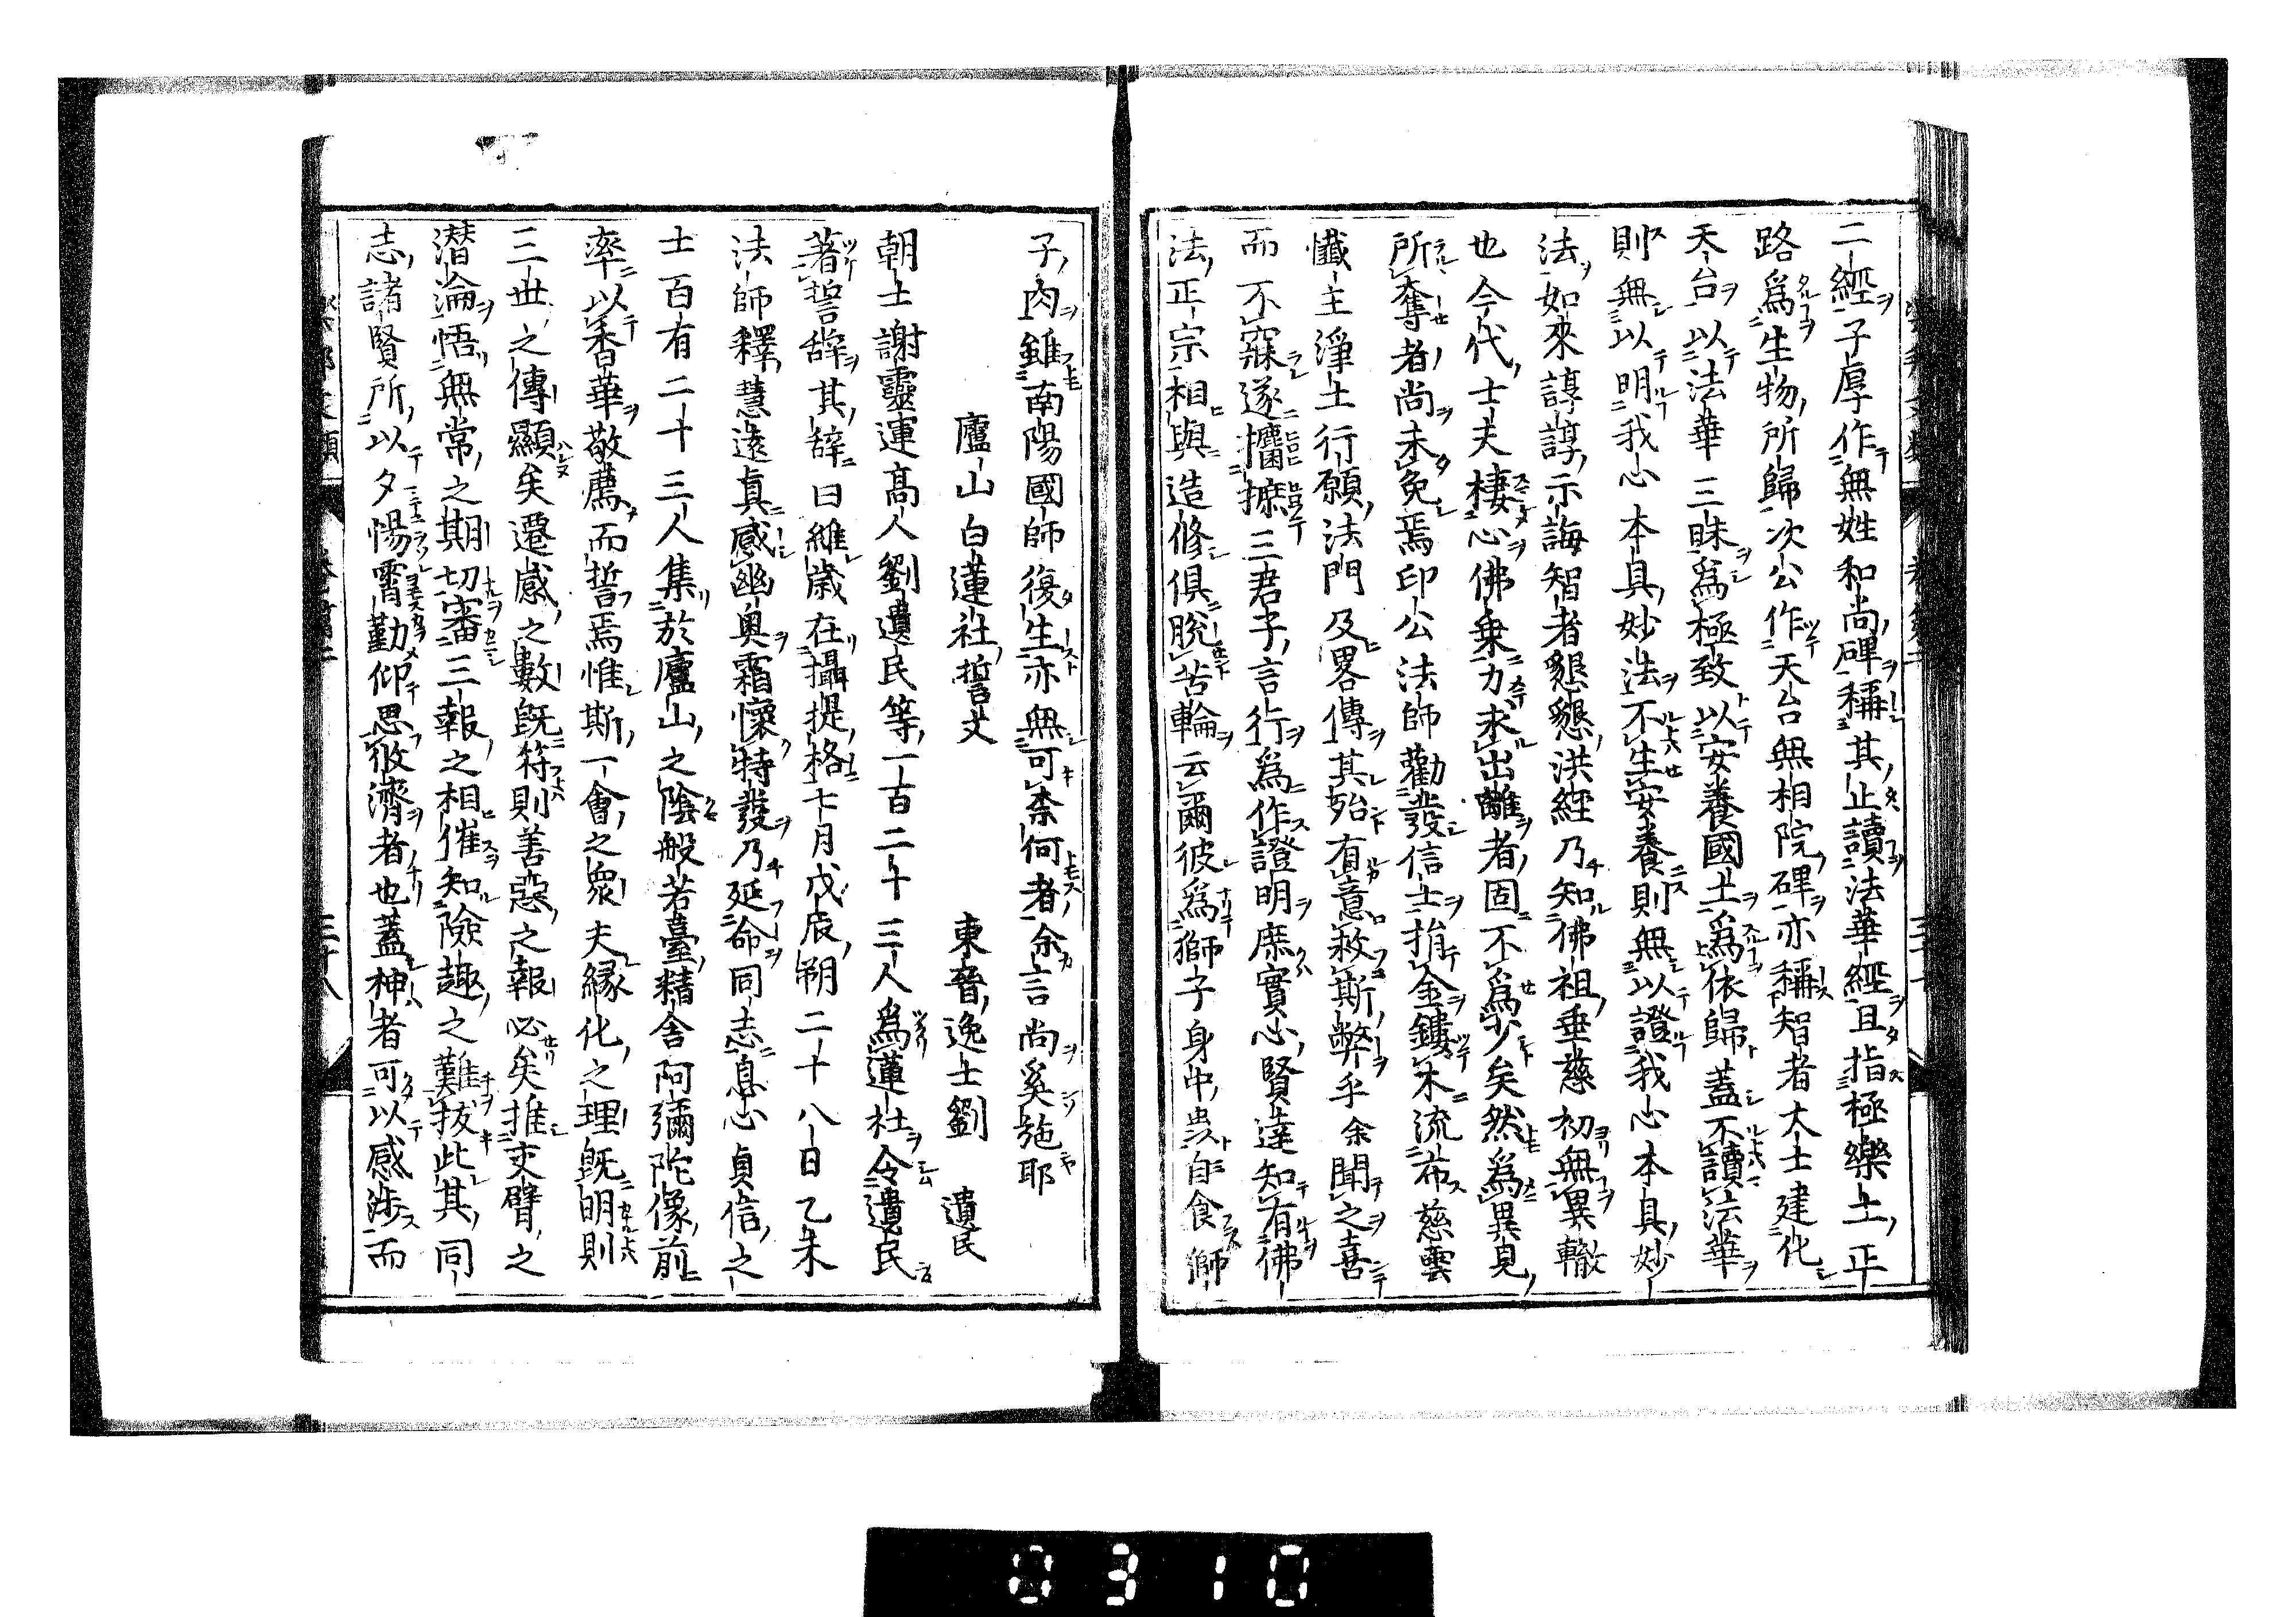 二經子厚作無姓和尚碑稱其止讀法華經且指極樂土正
路爲生物所歸次公作天台無相院碑亦稱智者大士建化
天台以法華三昧爲極致以安養國土爲依歸蓋不讀法華
則無以明我心本具妙法不生安養則無以證我心本具妙
法如來諄諄示誨智者懇懇洪經乃知佛祖垂慈初無異轍
也今代士夫棲心佛乗力求出離者固不爲少矣然爲異見
所奪者尚未免焉印公法師勸發信士捐金鏤木流布慈雲
懺主淨土行願法門及畧傳其殆有意救斯弊乎余聞之喜
而不寐遂攟摭三君子言行爲作證明庶實心賢達知有佛
法正宗相與造修俱脫苦輪云爾彼爲獅子身中虫自食獅
子肉雖南陽國師復生亦無可柰何者余言尚奚施耶
廬山白蓮社誓文
東晉逸士劉 遺民
朝士謝靈運高人劉遺民等一百二十三人爲蓮社令遺民
著誓辭其辭曰維歳在攝提格七月戊辰朔二十八日乙未
法師釋慧遠貞感幽奥霜懷特發乃延命同志息心貞信之
士百有二十三人集於廬山之陰般若臺精舍阿彌陀像前
率以香華敬薦而誓焉惟斯一會之衆夫緣化之理既明則
三世之傳顯矣遷感之數既符則善惡之報必矣推交臂之
潜淪悟無常之期切審三報之相催知險趣之難拔此其同
志諸賢所以夕惕宵勤仰思攸濟者也蓋神者可以感涉而
0310